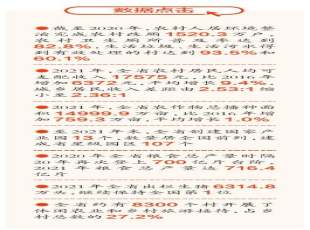 数据点击
截至2020年,农村人居环境整
治完成农村改厕1520.3万户,
农村卫生厕所普及率达到
82.8%,生活垃圾、生活污水得
到有效处理的村达到93.5%和
60.1%
2021年,全省农村居民人均可
支配收入17575元,比2016年
增加6372元,年均增长9.4%,
城乡居民收入差距由2.53:1缩
小至2.36:1
2021年,全省农作物总播种面
积14999.9万亩,比2016年增
加759.3万亩,年均增长1.0%
2021年末,全省创建国家产
业园13个,数量居全国前列,建
成省星级园区107个
2020年全省粮食总产量时隔
20年再登上700亿斤台阶,
2021年粮食总产量达716.4
亿斤
2021年全省出栏生猪6314.8
万头,继续保持全国第1位
全省约有8300个村开展了
休闲农业和乡村旅游接待,占乡
村总数的27.2%